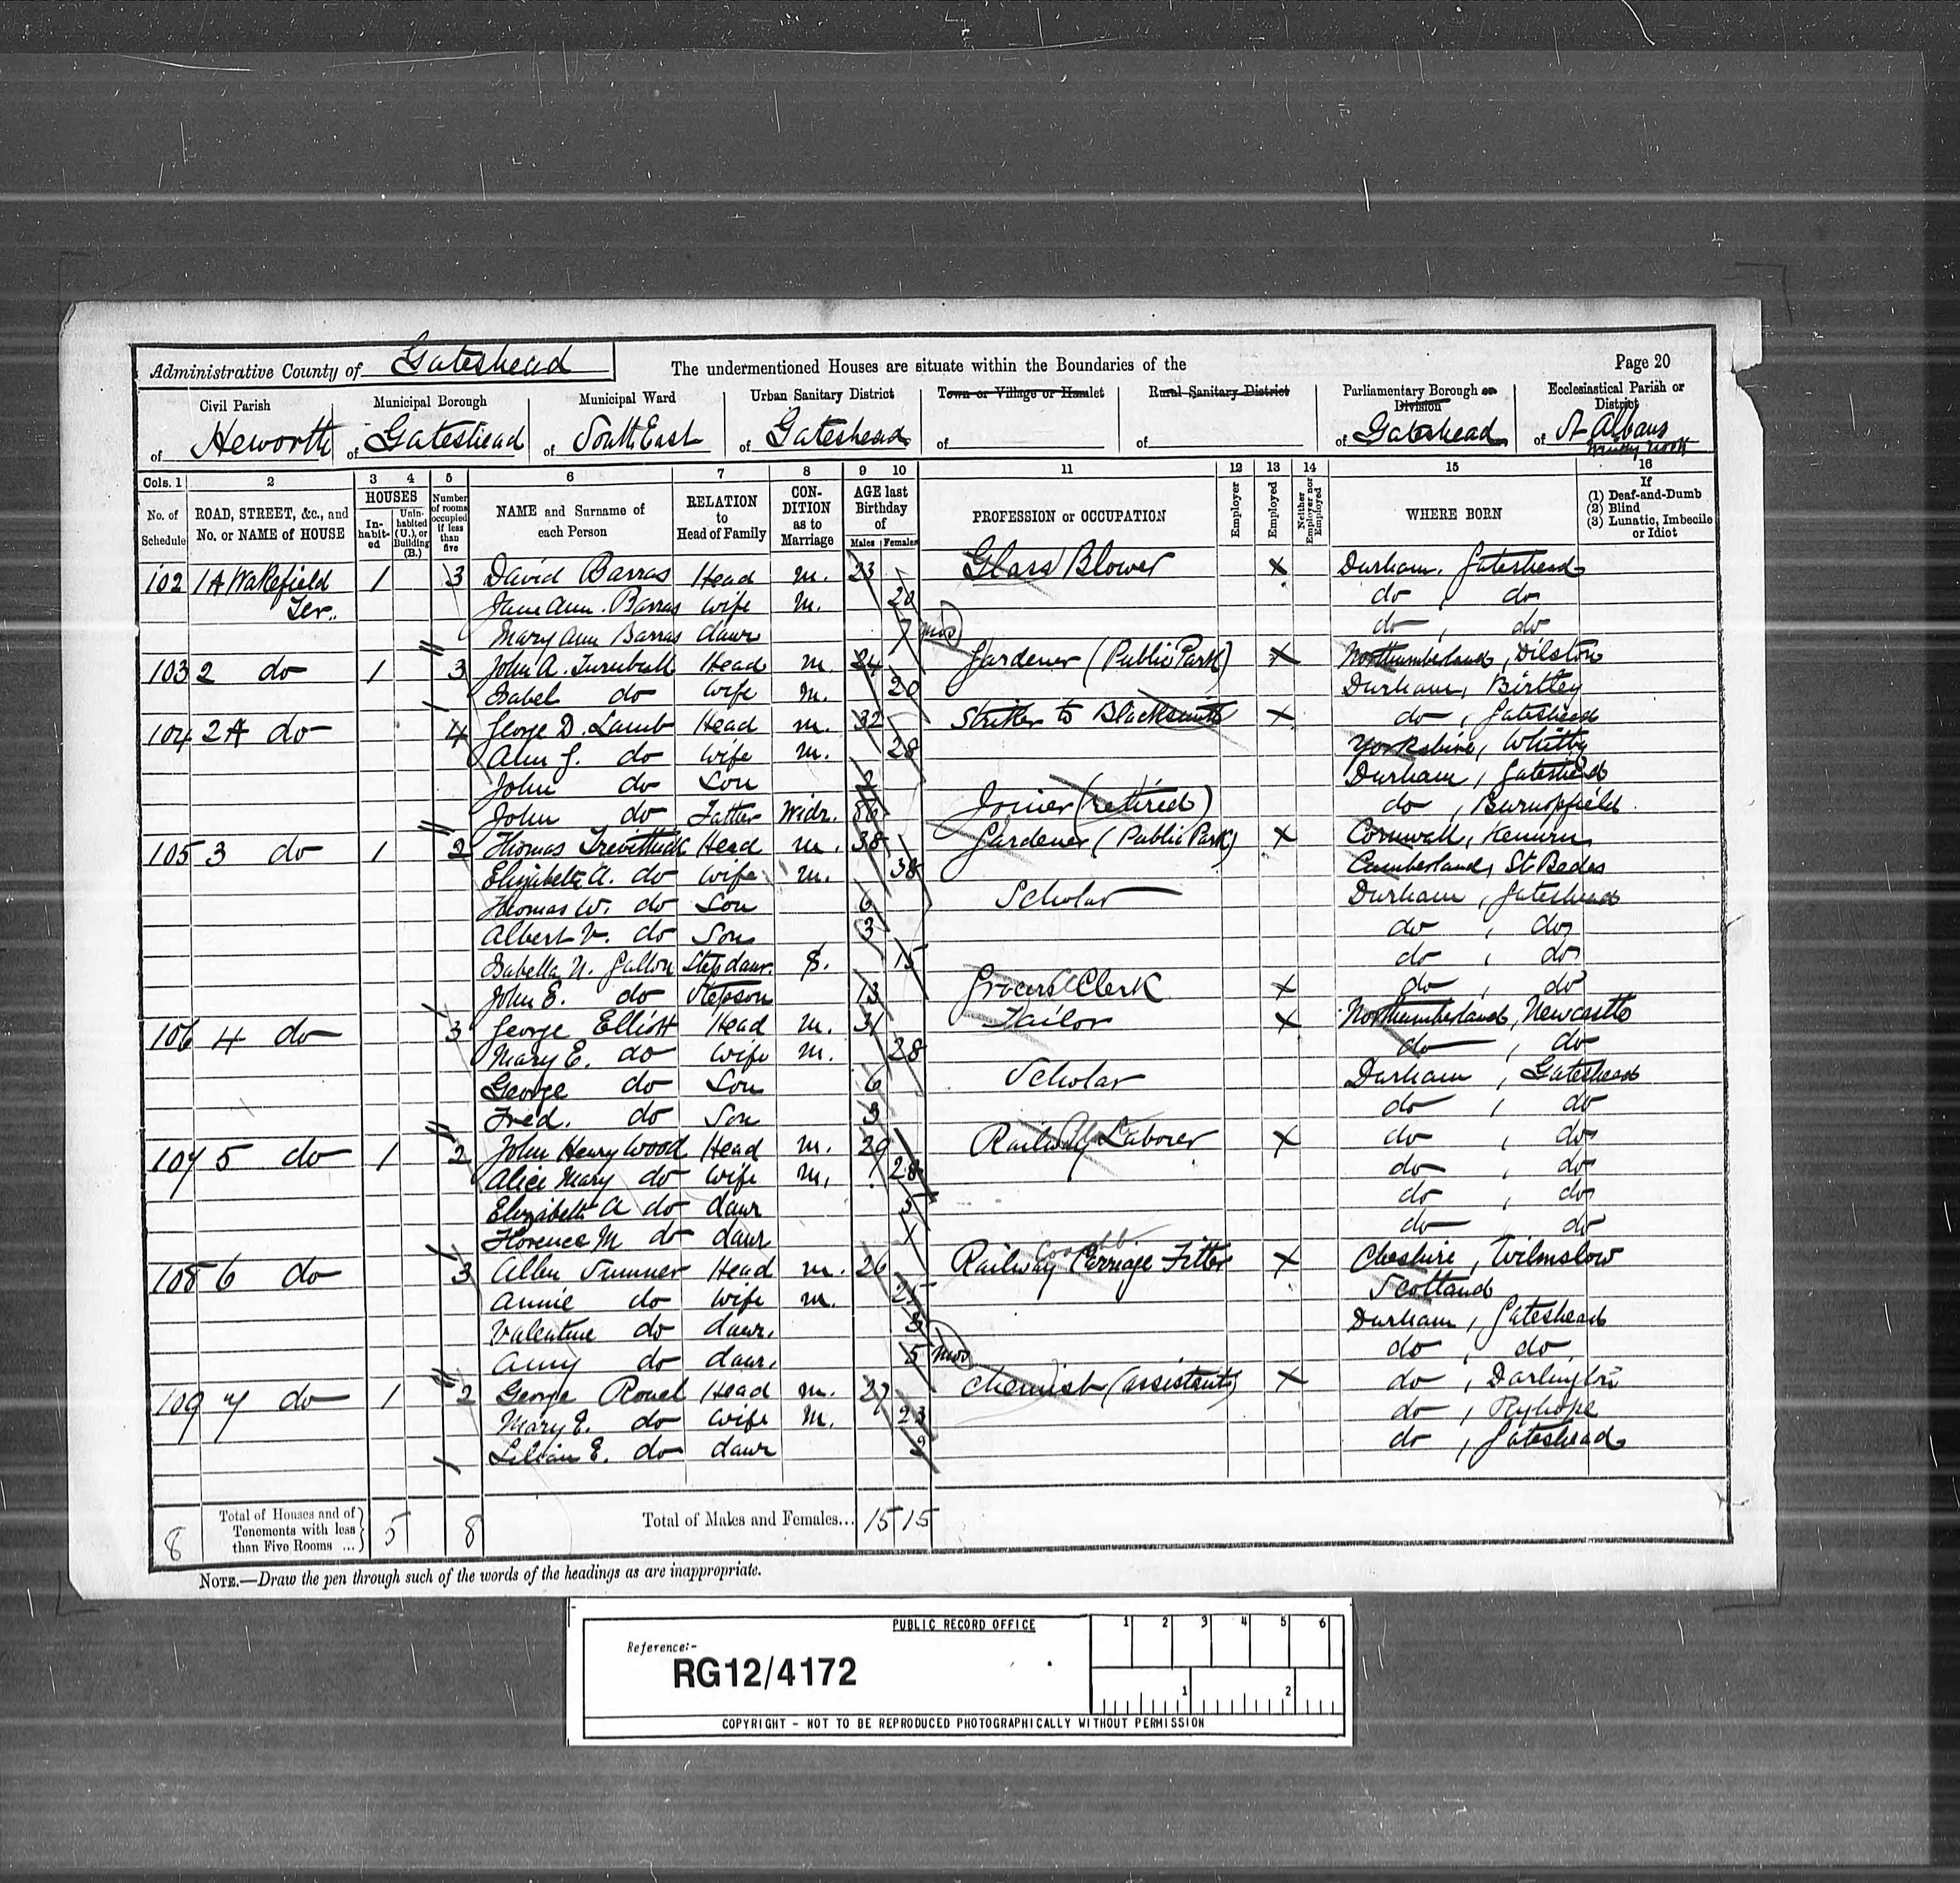 Administrative County of Gateshead The undermentioned Houses are situate within the Boundaries of the Page 20
Civil Parish Municipal Borough Municipal Ward Urban Sanitary District Town or Village or Hamlet Rural Sanitary District Parliamentary Borough or Division Ecclesiastical Parish or District
of Heworth of Gateshead of South East of Gateshead of of of Gateshead of St Albans Windy Nook
Cols. 1 2 3 4 5 6 7 8 9 10 11 12 13 14 15 16
No. of Schedule ROAD, STREET, &c., and No. or NAME of HOUSE HOUSES In-habit-ed Unin-habited (U.), or Building (B.) Number of rooms occupied if less than five NAME and Surname of each Person RELATION to Head of Family CON-DITION as to Marriage AGE last Birthday of Males Females PROFESSION or OCCUPATION Employer Employed Neither Employer nor Employed WHERE BORN If (1) Deaf-and-Dumb (2) Blind (3) Lunatic, Imbecile or Idiot
102 1A Wakefield Ter. 1 3 David Barras Head M. 23 Glass Blower X Durham, Gateshead
Jane Ann. Barras Wife M. 20 do , do
Mary Ann Barras daur 7 mos do , do
103 2 do 1 3 John A. Turnbull Head M. 24 Gardener (Public Park) X Northumberland, Dilston
Isabel do Wife M. 20 Durham, Birtley
104 2A do 4 George D. Lamb Head M. 32 Striker to Blacksmith X do , Gateshead
Ann J. do Wife M. 28 Yorkshire, Whitby
John do Son 2 Durham, Gateshead
John do Father Widr. 86 Joiner (retired) do , Burnopfield
105 3 do 1 2 Thomas Trevithick Head M. 38 Gardener (Public Park) X Cornwall,
Elizabeth A. do Wife M. 38 Cumberland, St Bedes
Thomas W. do Son 6 Scholar Durham, Gateshead
Albert V. do Son 3 do , do
Isabella N. Gallon Step daur. S. 15 do , do
John E. do Stepson 13 Grocers Clerk X do , do
106 4 do 3 George Elliott Head M. 31 Tailor X Northumberland, Newcastle
Mary E. do Wife M. 28 do , do
George do Son 6 Scholar Durham , Gateshead
Fred. do Son 3 do , do
107 5 do 1 2 John Henry Wood Head M. 29 Railway Laborer X do , do
Alice Mary do Wife M. 28 do , do
Elizabeth A do daur 5 do , do
Florence M do daur 1 do do
108 6 do 3 Allen Sumner Head M. 26 Railway Carriage Fitter X Cheshire, Wilmslow
Annie do Wife M. 25 Scotland
Valentine do daur. 3 Durham, Gateshead
Amy do daur. 5 mos do , do
109 7 do 1 2 George Rowel Head M. 27 Chemist (assistant) X do , Darlington
Mary E. do Wife M. 23 do , Ryhope
Lilian E. do daur 2 do , Gateshead
8 Total of Houses and of Tenements with less than Five Rooms ... 5 8 Total of Males and Females... 15 15
NOTE.—Draw the pen through such of the words of the headings as are inappropriate.
PUBLIC RECORD OFFICE 1 2 3 4 5 6
Reference:-
RG12/4172
1 2
COPYRIGHT - NOT TO BE REPRODUCED PHOTOGRAPHICALLY WITHOUT PERMISSION